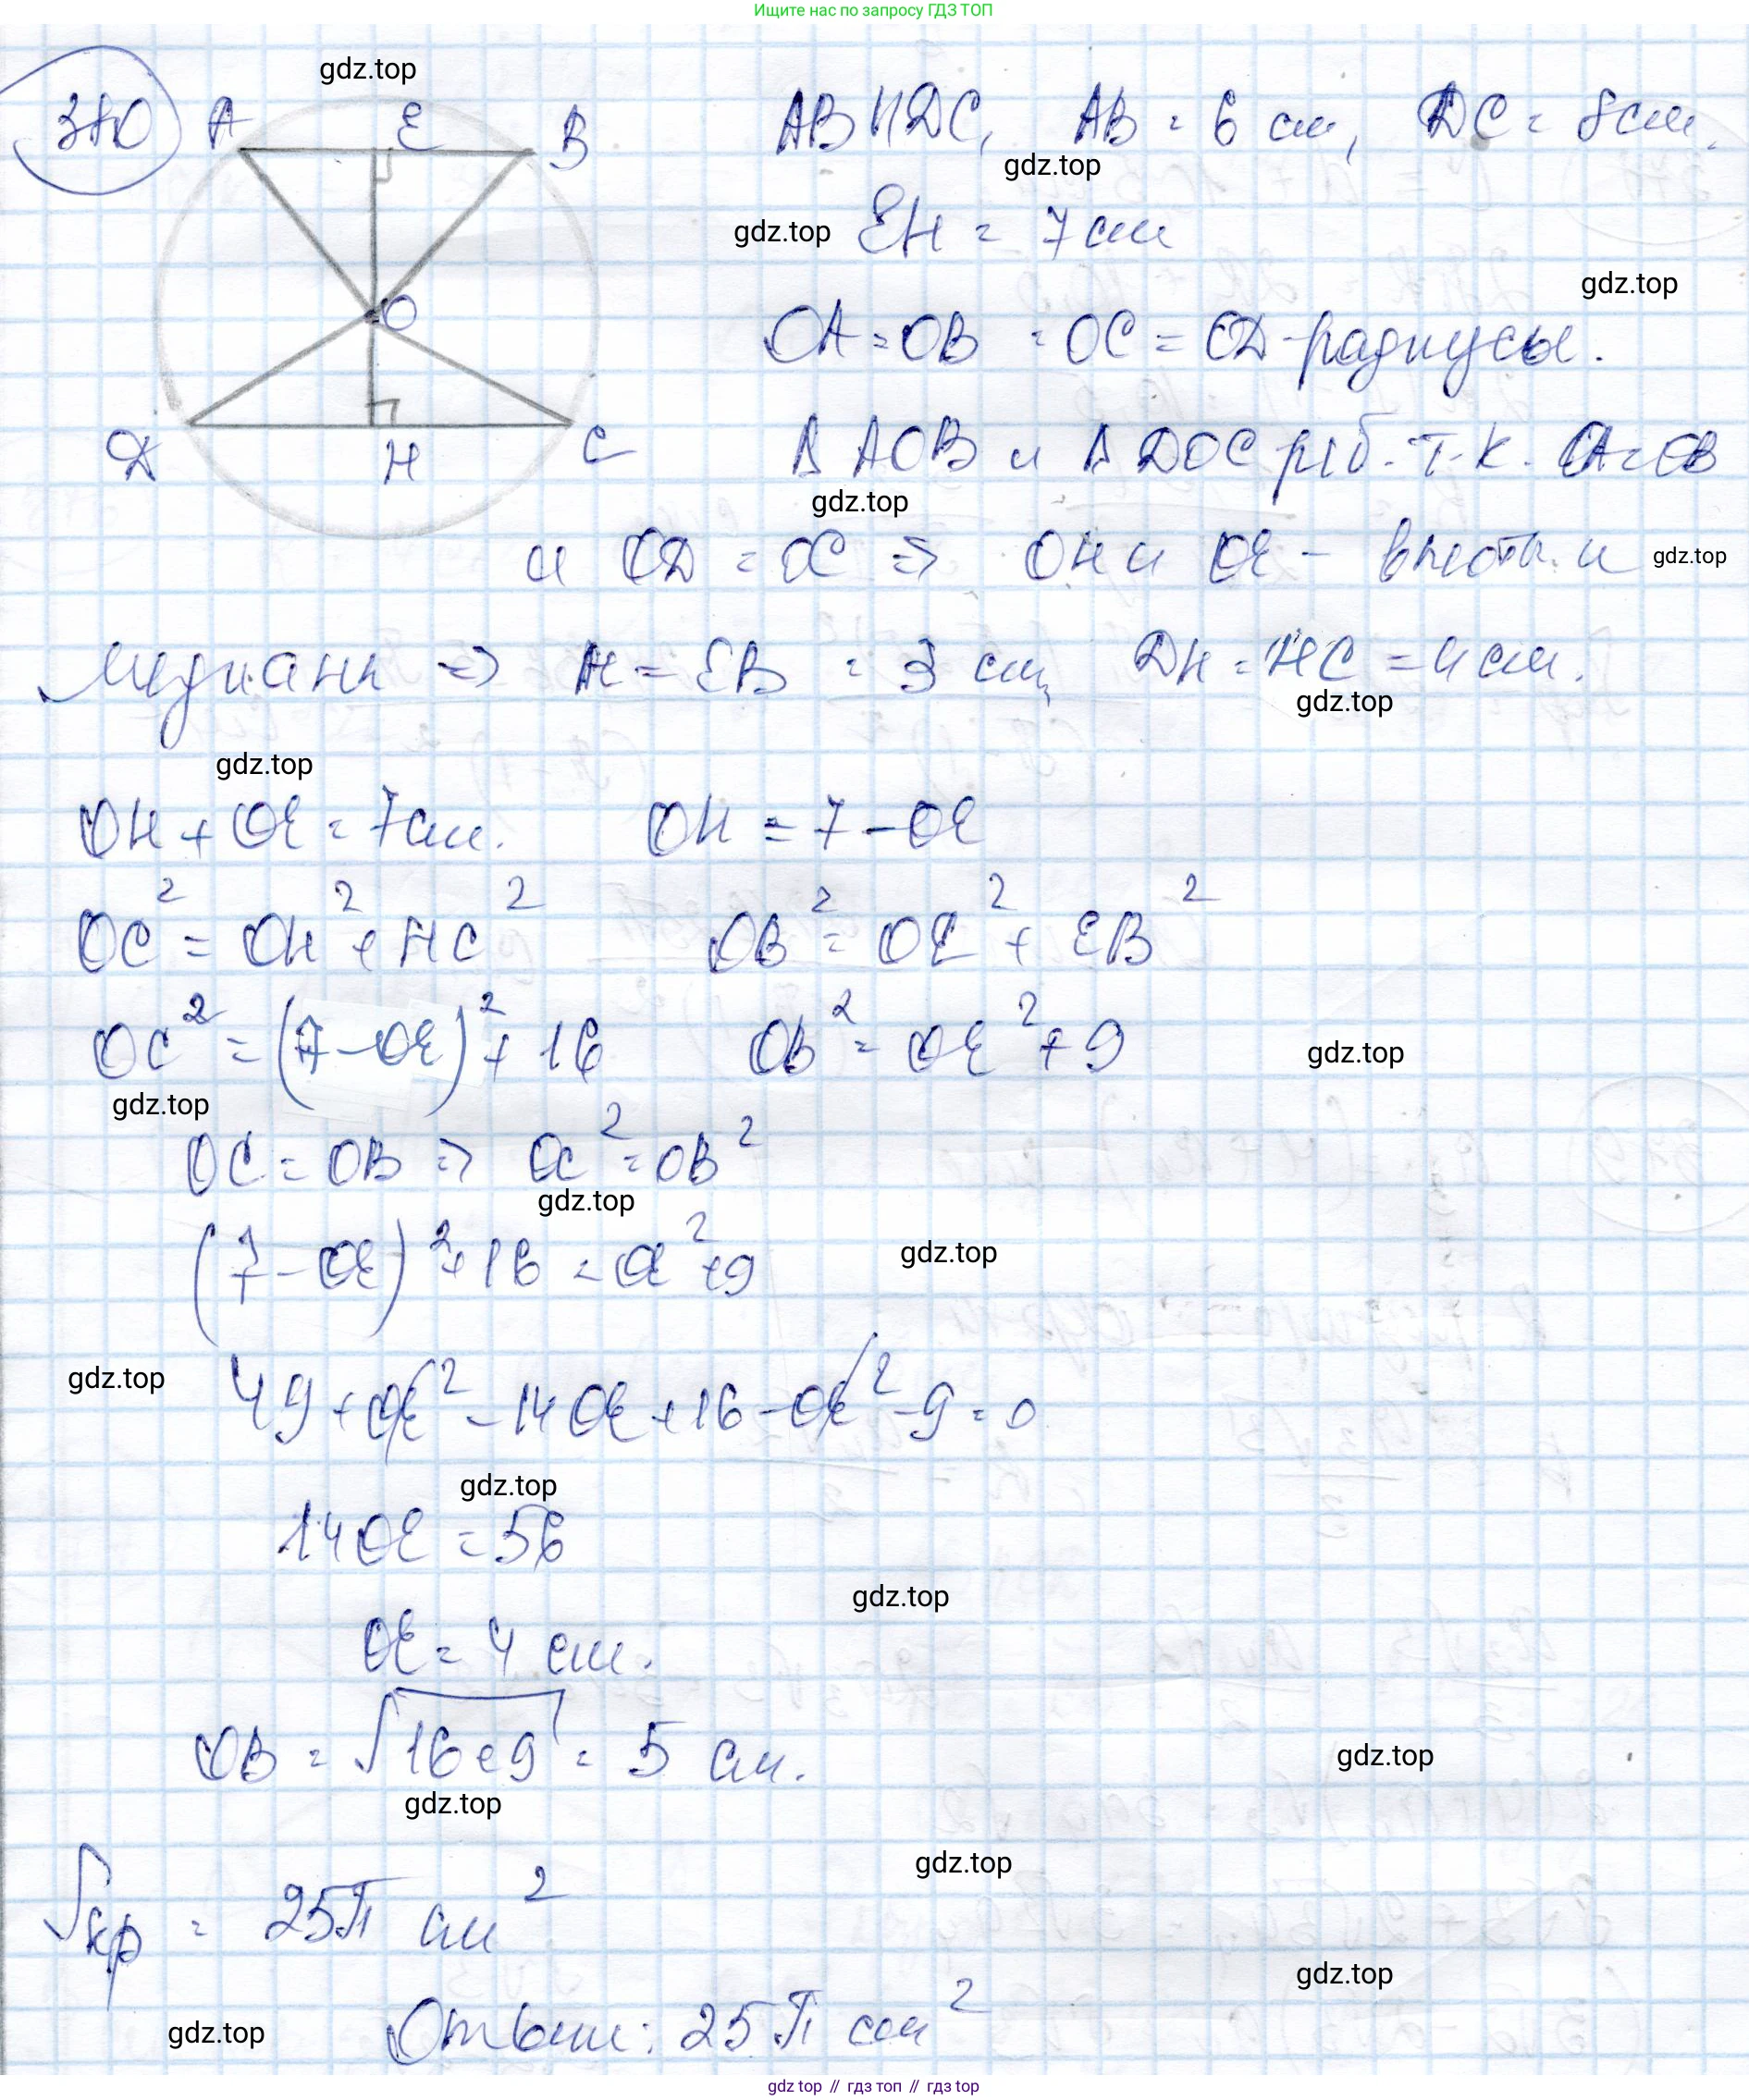 Ищите нас по запросу ГДЗ ТОП
gdz.top
380 A E B AB || DC, AB = 6 см, DC = 8 см.
gdz.top
gdz.top EH = 7 см
gdz.top
O OA = OB = OC = OD - радиусы.
D H C Δ AOB и Δ DOC р/б. т.к. OA = OB
gdz.top
и OD = OC => OH и OE - высоты и gdz.top
медианы => AE = EB = 3 см, DH = HC = 4 см.
gdz.top
gdz.top
OH + OE = 7 см. OH = 7 - OE
OC² = OH² + HC² OB² = OE² + EB²
OC² = (7 - OE)² + 16 OB² = OE² + 9 gdz.top
gdz.top
OC = OB => OC² = OB²
gdz.top
(7 - OE)² + 16 = OE² + 9 gdz.top
gdz.top 49 + OE² - 14 OE + 16 - OE² - 9 = 0
gdz.top
14 OE = 56
gdz.top
OE = 4 см.
OB = √16+9 = 5 см. gdz.top
gdz.top
gdz.top
Sкр = 25π см²
gdz.top
gdz.top Ответ: 25π см²
gdz.top // гдз топ // gdz.top